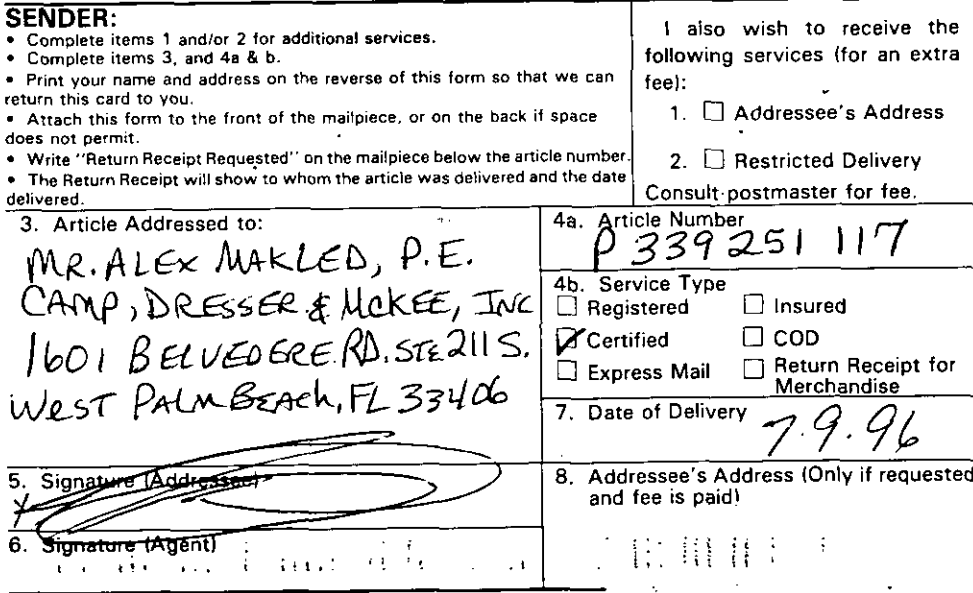 SENDER:
• Complete items 1 and/or 2 for additional services.
• Complete items 3, and 4a & b.
• Print your name and address on the reverse of this form so that we can
return this card to you.
• Attach this form to the front of the mailpiece, or on the back if space
does not permit.
• Write "Return Receipt Requested" on the mailpiece below the article number.
• The Return Receipt will show to whom the article was delivered and the date
delivered.
I also wish to receive the
following services (for an extra
fee):
1. ☐ Addressee's Address
2. ☐ Restricted Delivery
Consult postmaster for fee.
3. Article Addressed to:
MR. ALEX MAKLED, P.E.
CAMP, DRESSER & MCKEE, INC
1601 BELVEDERE RD. STE 211 S.
WEST PALM BEACH, FL 33406
4a. Article Number
P 339 251 117
4b. Service Type
☐ Registered ☐ Insured
☑ Certified ☐ COD
☐ Express Mail ☐ Return Receipt for
Merchandise
7. Date of Delivery
7.9.96
5. Signature (Addressee)
X
6. Signature (Agent)
8. Addressee's Address (Only if requested
and fee is paid)